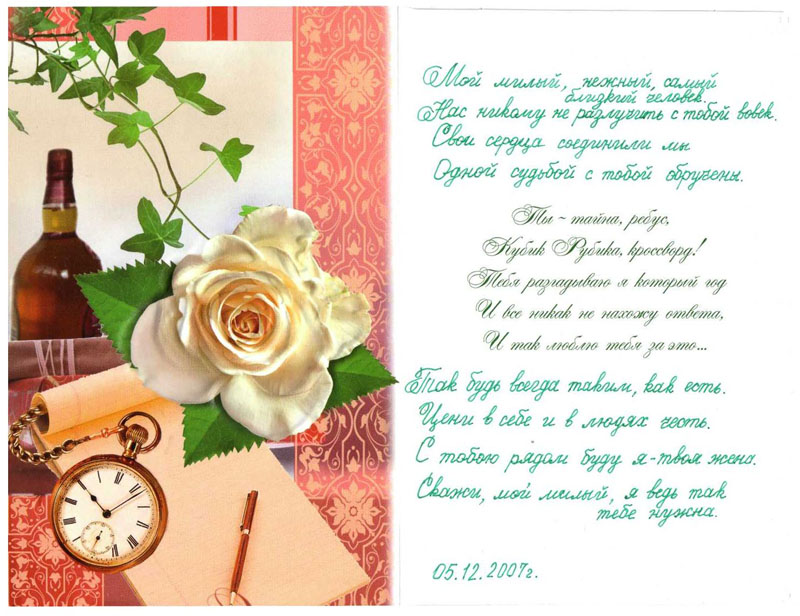 Мой милый, нежный, самый
близкий человек.
Нас никому не разлучить с тобой вовек.
Свои сердца соединили мы
Одной судьбой с тобой обручены.
Ты - тайна, ребус,
Кубик Рубика, кроссворд!
Тебя разгадываю я который год
И все никак не нахожу ответа,
И так люблю тебя за это...
Так будь всегда таким, как есть.
Цени в себе и в людях честь.
С тобою рядом буду я - твоя жена.
Скажи, мой милый, я ведь так
тебе нужна.
05.12.2007г.